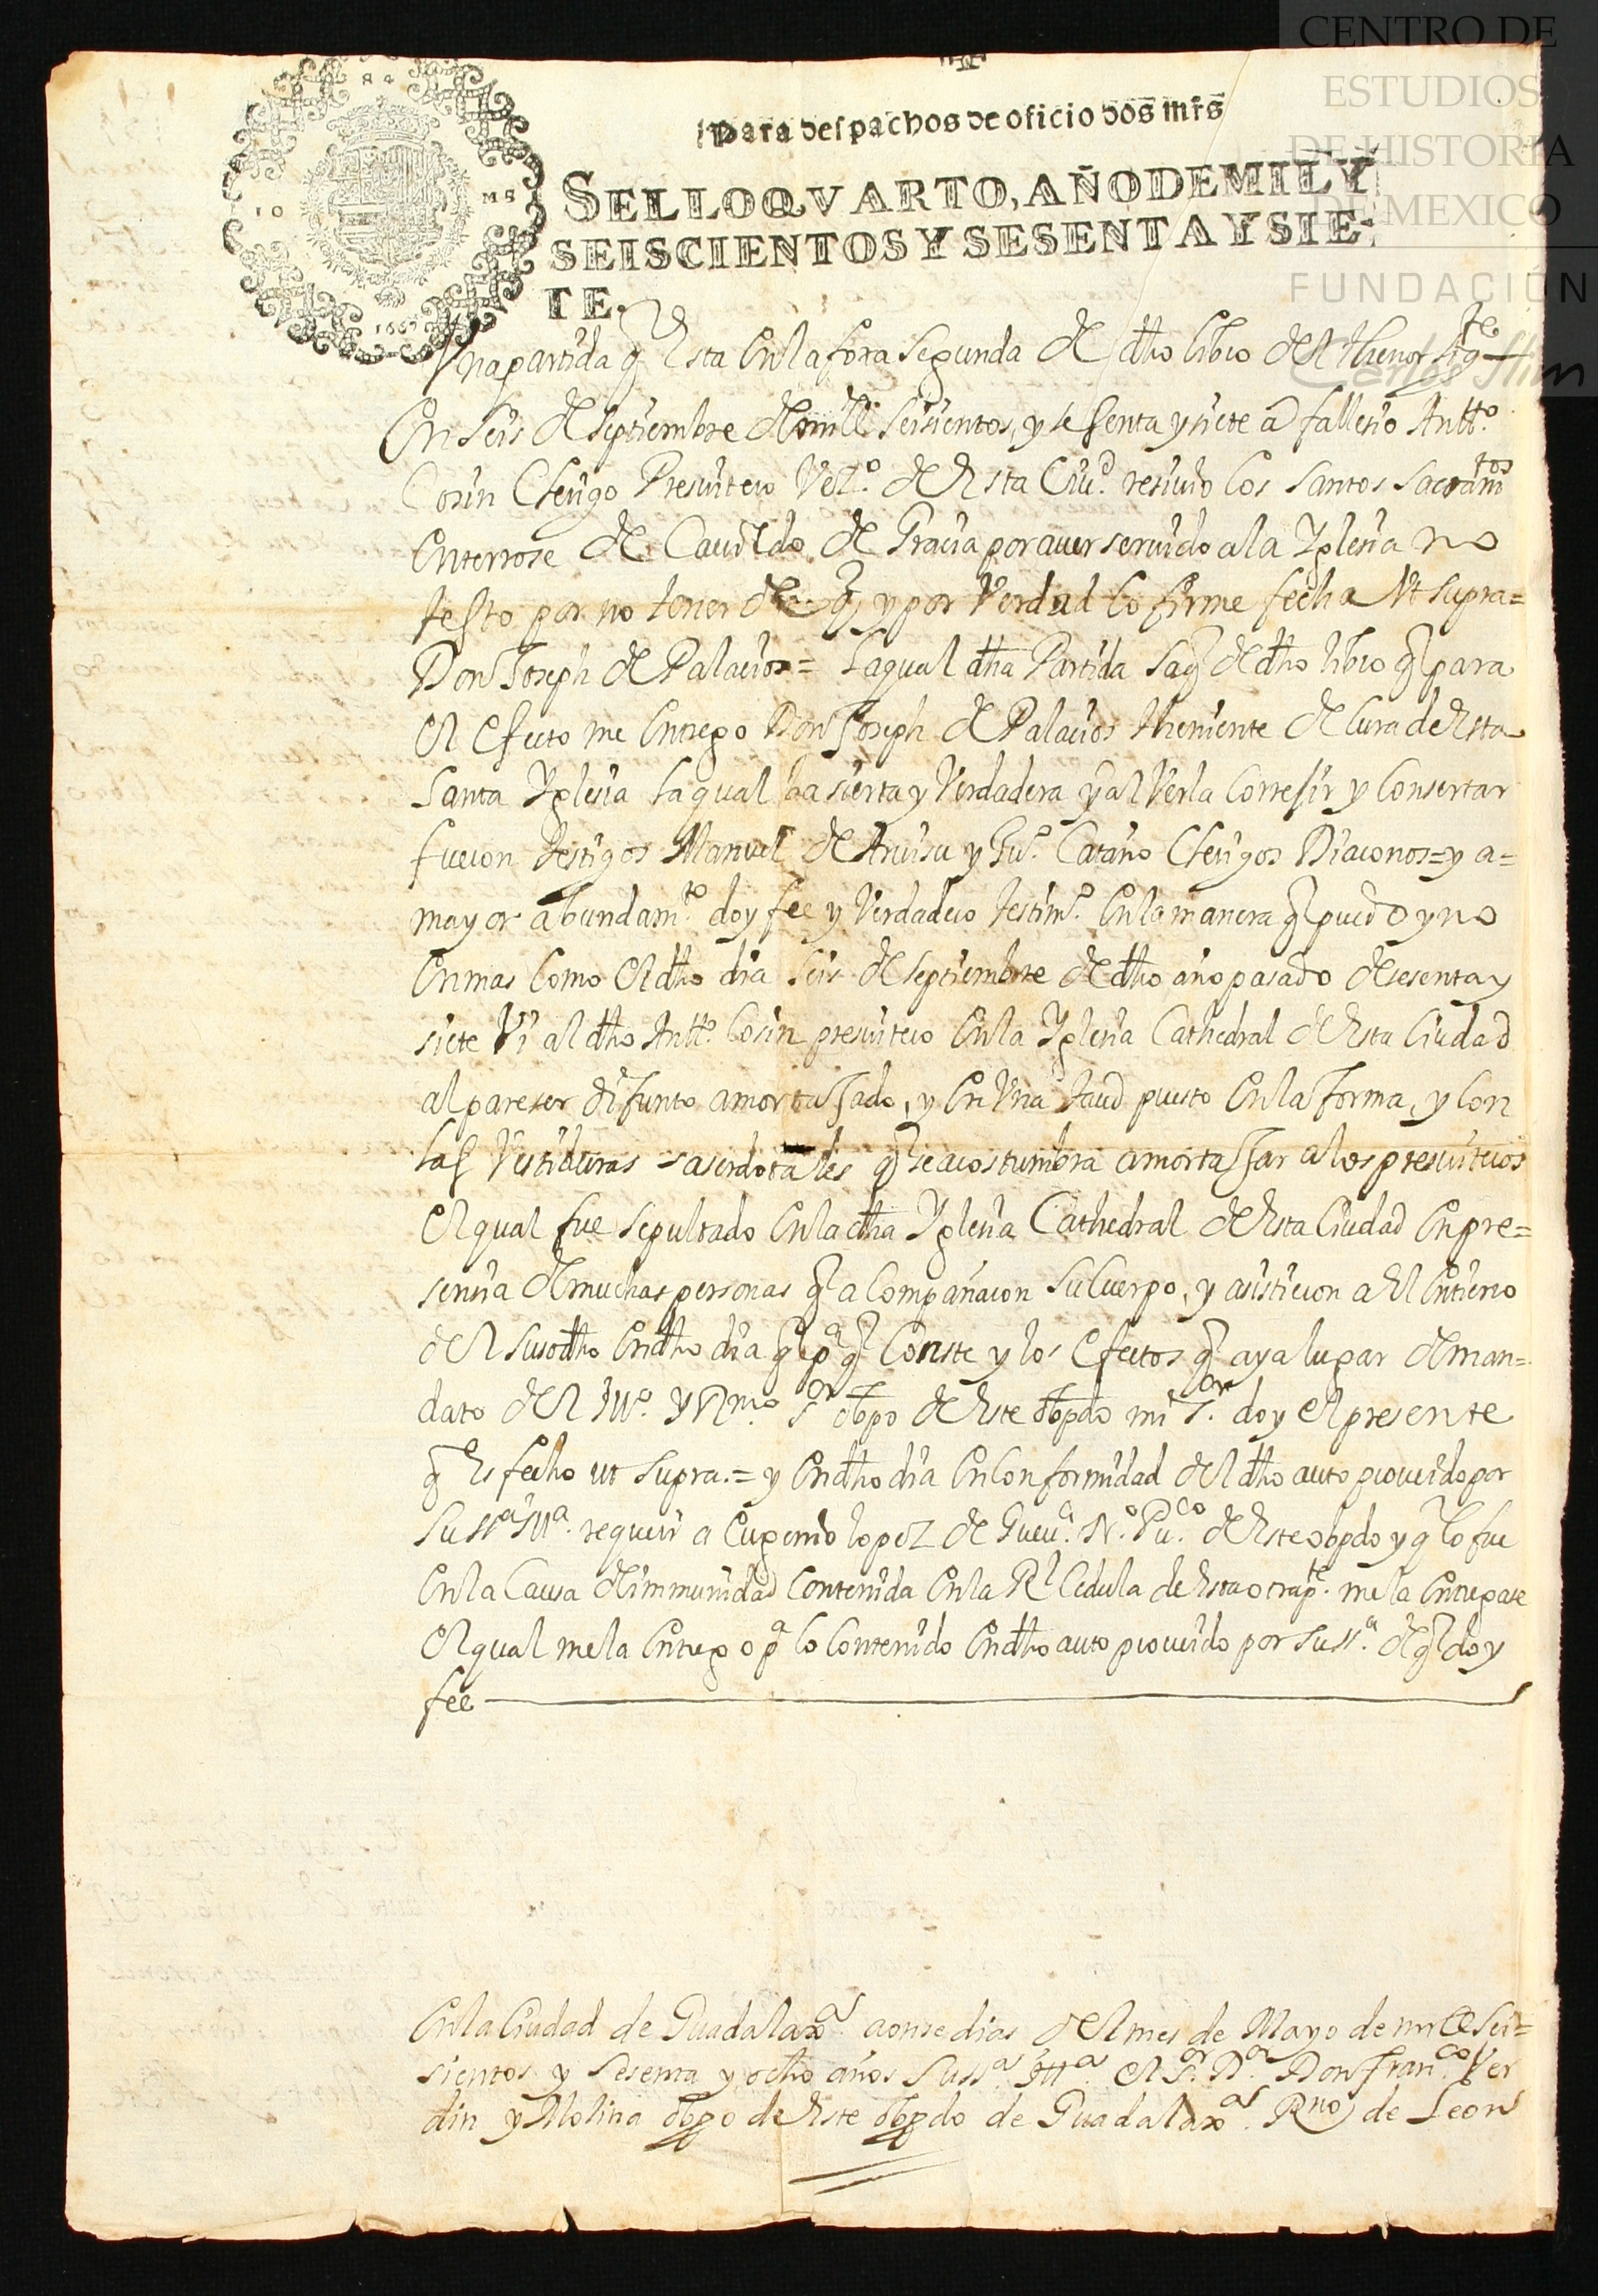 CENTRO DE
ESTUDIOS
DE HISTORIA
DE MEXICO
FUNDACIÓN
Carlos Slim
Para despachos de oficio dos mrs
SELLO QVARTO, AÑO DE MIL Y
SEISCIENTOS Y SESENTA Y SIE-
TE.
Vna partida q̃ esta en la foxa segunda de dho libro del thenor sigte
En seis de septiembre de mill seisientos, y sesenta y siete a fallesio Antto.
Cosin Clerigo Presuitero Vezo. de esta Ciud. resiuio los Santos Sacramtos
enterrose de Cauildo de Gracia por auer seruido a la Yglesia no
testo por no tener de q̃ y por Verdad lo firme fecha Vt supra=
Don Joseph de Palacios= la qual dha Partida saq̃ de dho libro q̃ para
el efecto me entrego Don Joseph de Palacios theniente de Cura de esta
Santa Yglesia la qual ba sierta y Verdadera y al Verla Corresir y Consertar
fueron testigos Manuel de y Catano Clerigos Diaconos= y a=
mayor abundamto. doy fee y Verdadero testimo. en la manera q̃ puedo y no
en mas como el dho dia seis de septiembre de dho año pasado de sesenta y
siete Vi al dho Antto. Cosin presuitero en la Yglesia Cathedral de esta Ciudad
al pareser difunto amortajado, y en Vna taud puesto en la forma, y con
las Vestiduras saserdotales q̃ se acostumbra amortajar a los presuiteros
el qual fue sepultado en la dha Yglesia Cathedral de esta Ciudad en pre=
sensia de muchas personas q̃ acompañaron su Cuerpo, y asistieron a el entierro
del susodho en dho dia q̃ pa q̃ Conste y los efectos q̃ aya lugar de man=
dato del Illo. y Rmo. Sor obpo de este obpdo mi Sor. doy el presente
q̃ es fecho ut supra.= y en dho dia en Conformidad del dho auto proueido por
su ssa Illa. requeri a Eugenio lopez de Gueua. No. Puco. de este obpdo y q̃ lo fue
en la Causa de immunidad Contenida en la Rl Cedula de esta otra pte. me la entregase
el qual me la entrego pa lo Contenido en dho auto proueido por su ssa. de q̃ doy
fee
En la Ciudad de Guadalaxa. a onse dias del mes de Mayo de mill Sei=
sientos y sesenta y ocho años su ssa. Illa. el Sor. Dor. Don Franco. Ver
din y Molina obpo de este obpdo de Guadalaxa. Rno de Leon